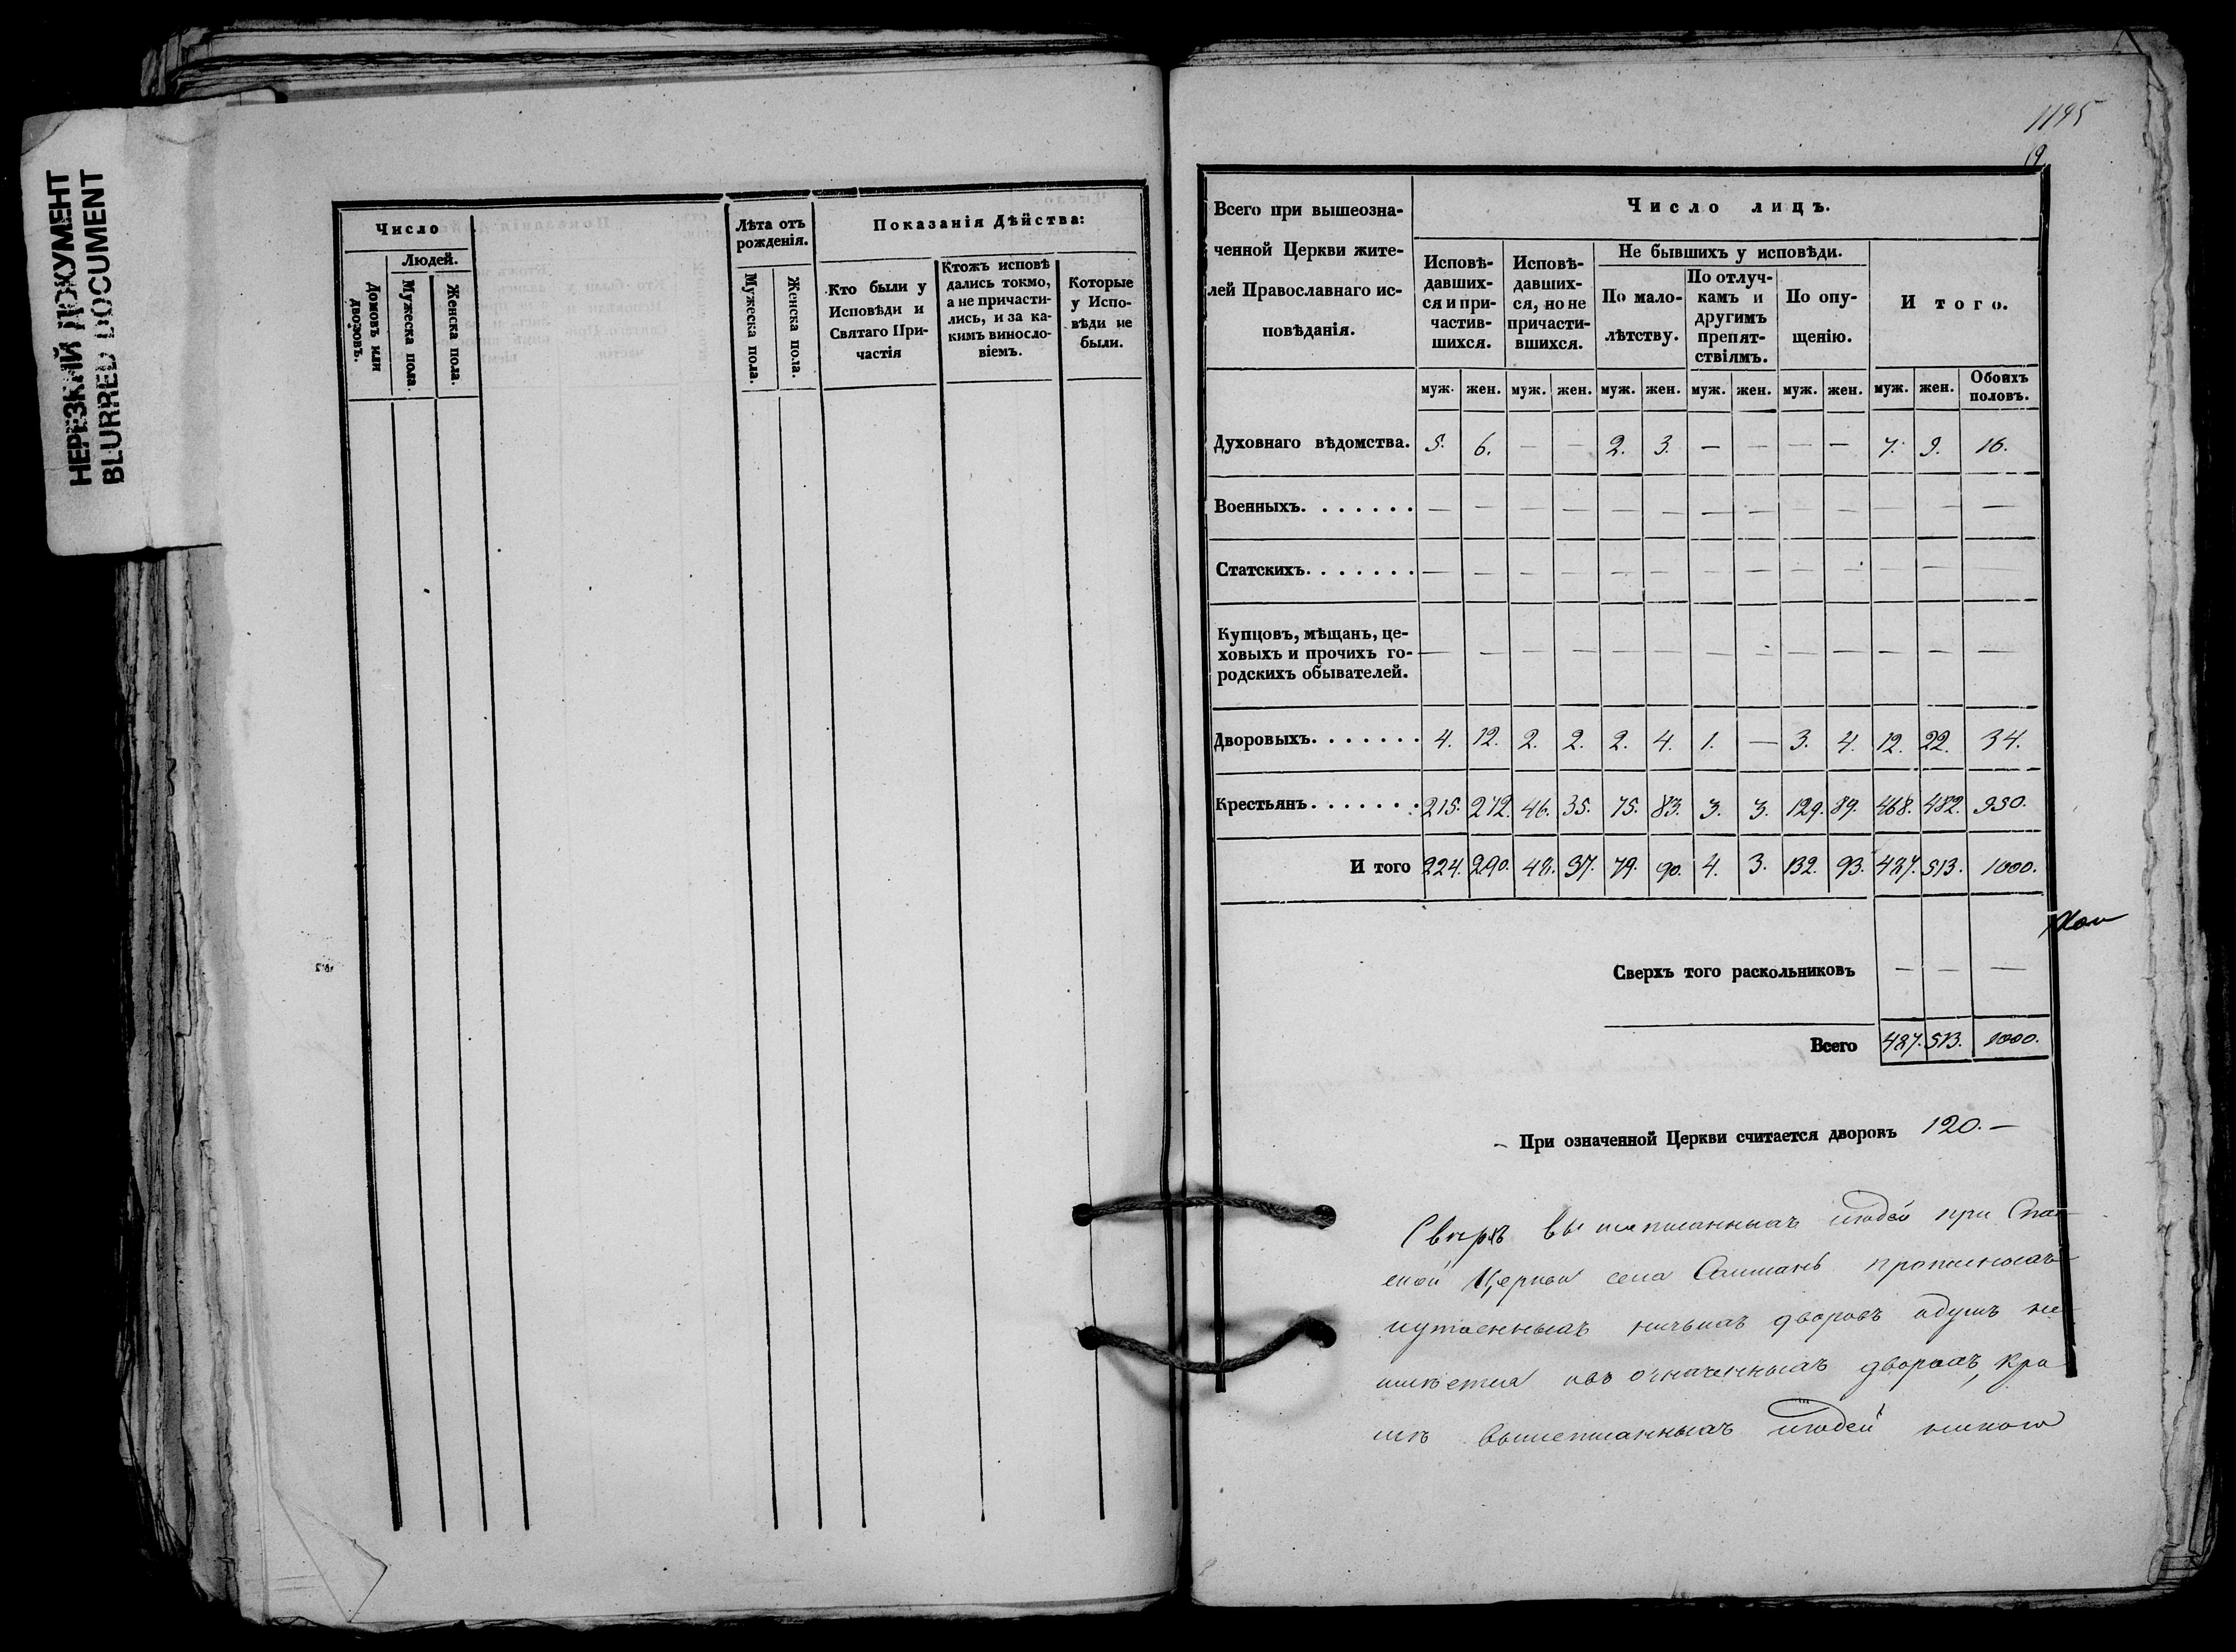 НЕРЕЗКИЙ ДОКУМЕНТ
BLURRED DOCUMENT
Число
Людей.
Домовъ или дворовъ.
Мужеска пола.
Женска пола.
Лѣта отъ рожденія.
Мужеска пола.
Женска пола.
Показанія Дѣйства:
Кто были у
Исповѣди и
Святаго При-
частія
Ктожъ исповѣ
дались токмо,
а не причасти-
лись, и за ка-
кимъ винослo-
віемъ.
Которые
у Испо-
вѣди не
были.
1195
Всего при вышеозна-
ченной Церкви жите-
лей Православнаго ис-
повѣданія.
Число лицъ.
Исповѣ-
давших-
ся и при-
частив-
шихся.
Исповѣ-
давших-
ся, но не
причасти-
вшихся.
Не бывшихъ у исповѣди.
По мало-
лѣтству.
По отлуч-
камъ и
другимъ
препят-
ствіямъ.
По опу-
щенію.
И того.
муж. жен. муж. жен. муж. жен. муж. жен. муж. жен. муж. жен. Обоихъ половъ.
Духовнаго вѣдомства. 5. 6. — — 2. 3. — — — — 7. 9. 16.
Военныхъ. — — — — — — — — — — — — —
Статскихъ. — — — — — — — — — — — — —
Купцовъ, мѣщанъ, це-
ховыхъ и прочихъ го-
родскихъ обывателей. — — — — — — — — — — — — —
Дворовыхъ. 4. 12. 2. 2. 2. 4. 1. — 3. 4. 12. 22. 34.
Крестьянъ. 215. 272. 46. 35. 75. 83. 3. 3. 129. 89. 468. 482. 950.
И того 224. 290. 48. 37. 79. 90. 4. 3. 132. 93. 487. 513. 1000.
Сверхъ того раскольниковъ — — —
Всего 487. 513. 1000.
При означенной Церкви считается дворовъ 120. —
Сверхъ вы шеписанныхъ людей при Спа-
ской Церкви села
дворовъ
означенныхъ дворахъ, кро
мѣ вышеписанныхъ людей никого